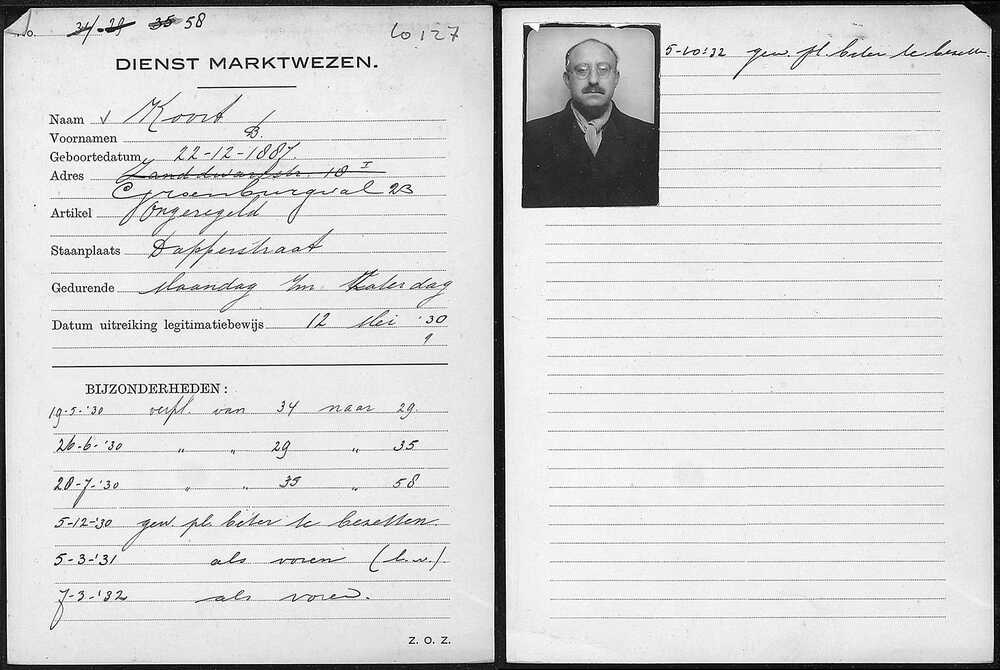 No. 34 29 35 58
60127
DIENST MARKTWEZEN.
Naam v Koort
Voornamen B.
Geboortedatum 22-12-1887.
Adres Zanddwarsstr. 18 I
23
Artikel Ongeregeld
Staanplaats Dapperstraat
Gedurende Maandag t/m Zaterdag
Datum uitreiking legitimatiebewijs 12 Mei '30
BIJZONDERHEDEN:
19-5-'30 verpl. van 34 naar 29.
26-6-'30 " " 29 " 35
28-7-'30 " " 35 " 58
5-12-'30 gew. pl. beter te bezetten.
5-3-'31 als voren (l.w.).
7-3-'32 als voren.
Z. O. Z.
5-10-'32 gew. pl. beter te bezetten